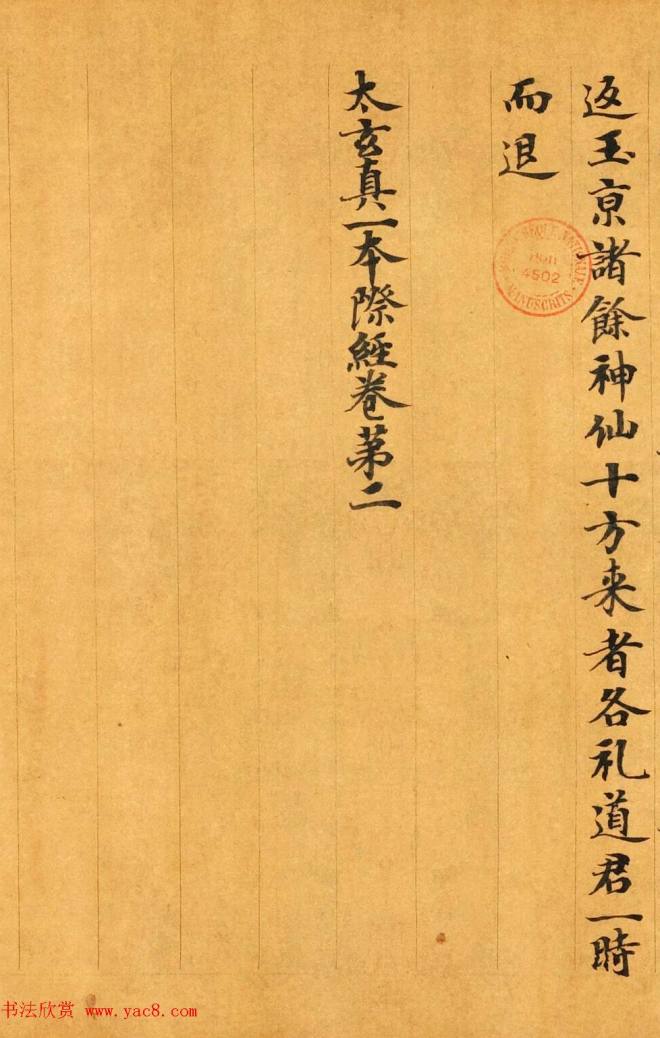 返玉京諸餘神仙十方来者各礼道君一時
而退
太玄真一本際經卷第二
MANUSCRITS
4502
书法欣赏 www.yac8.com